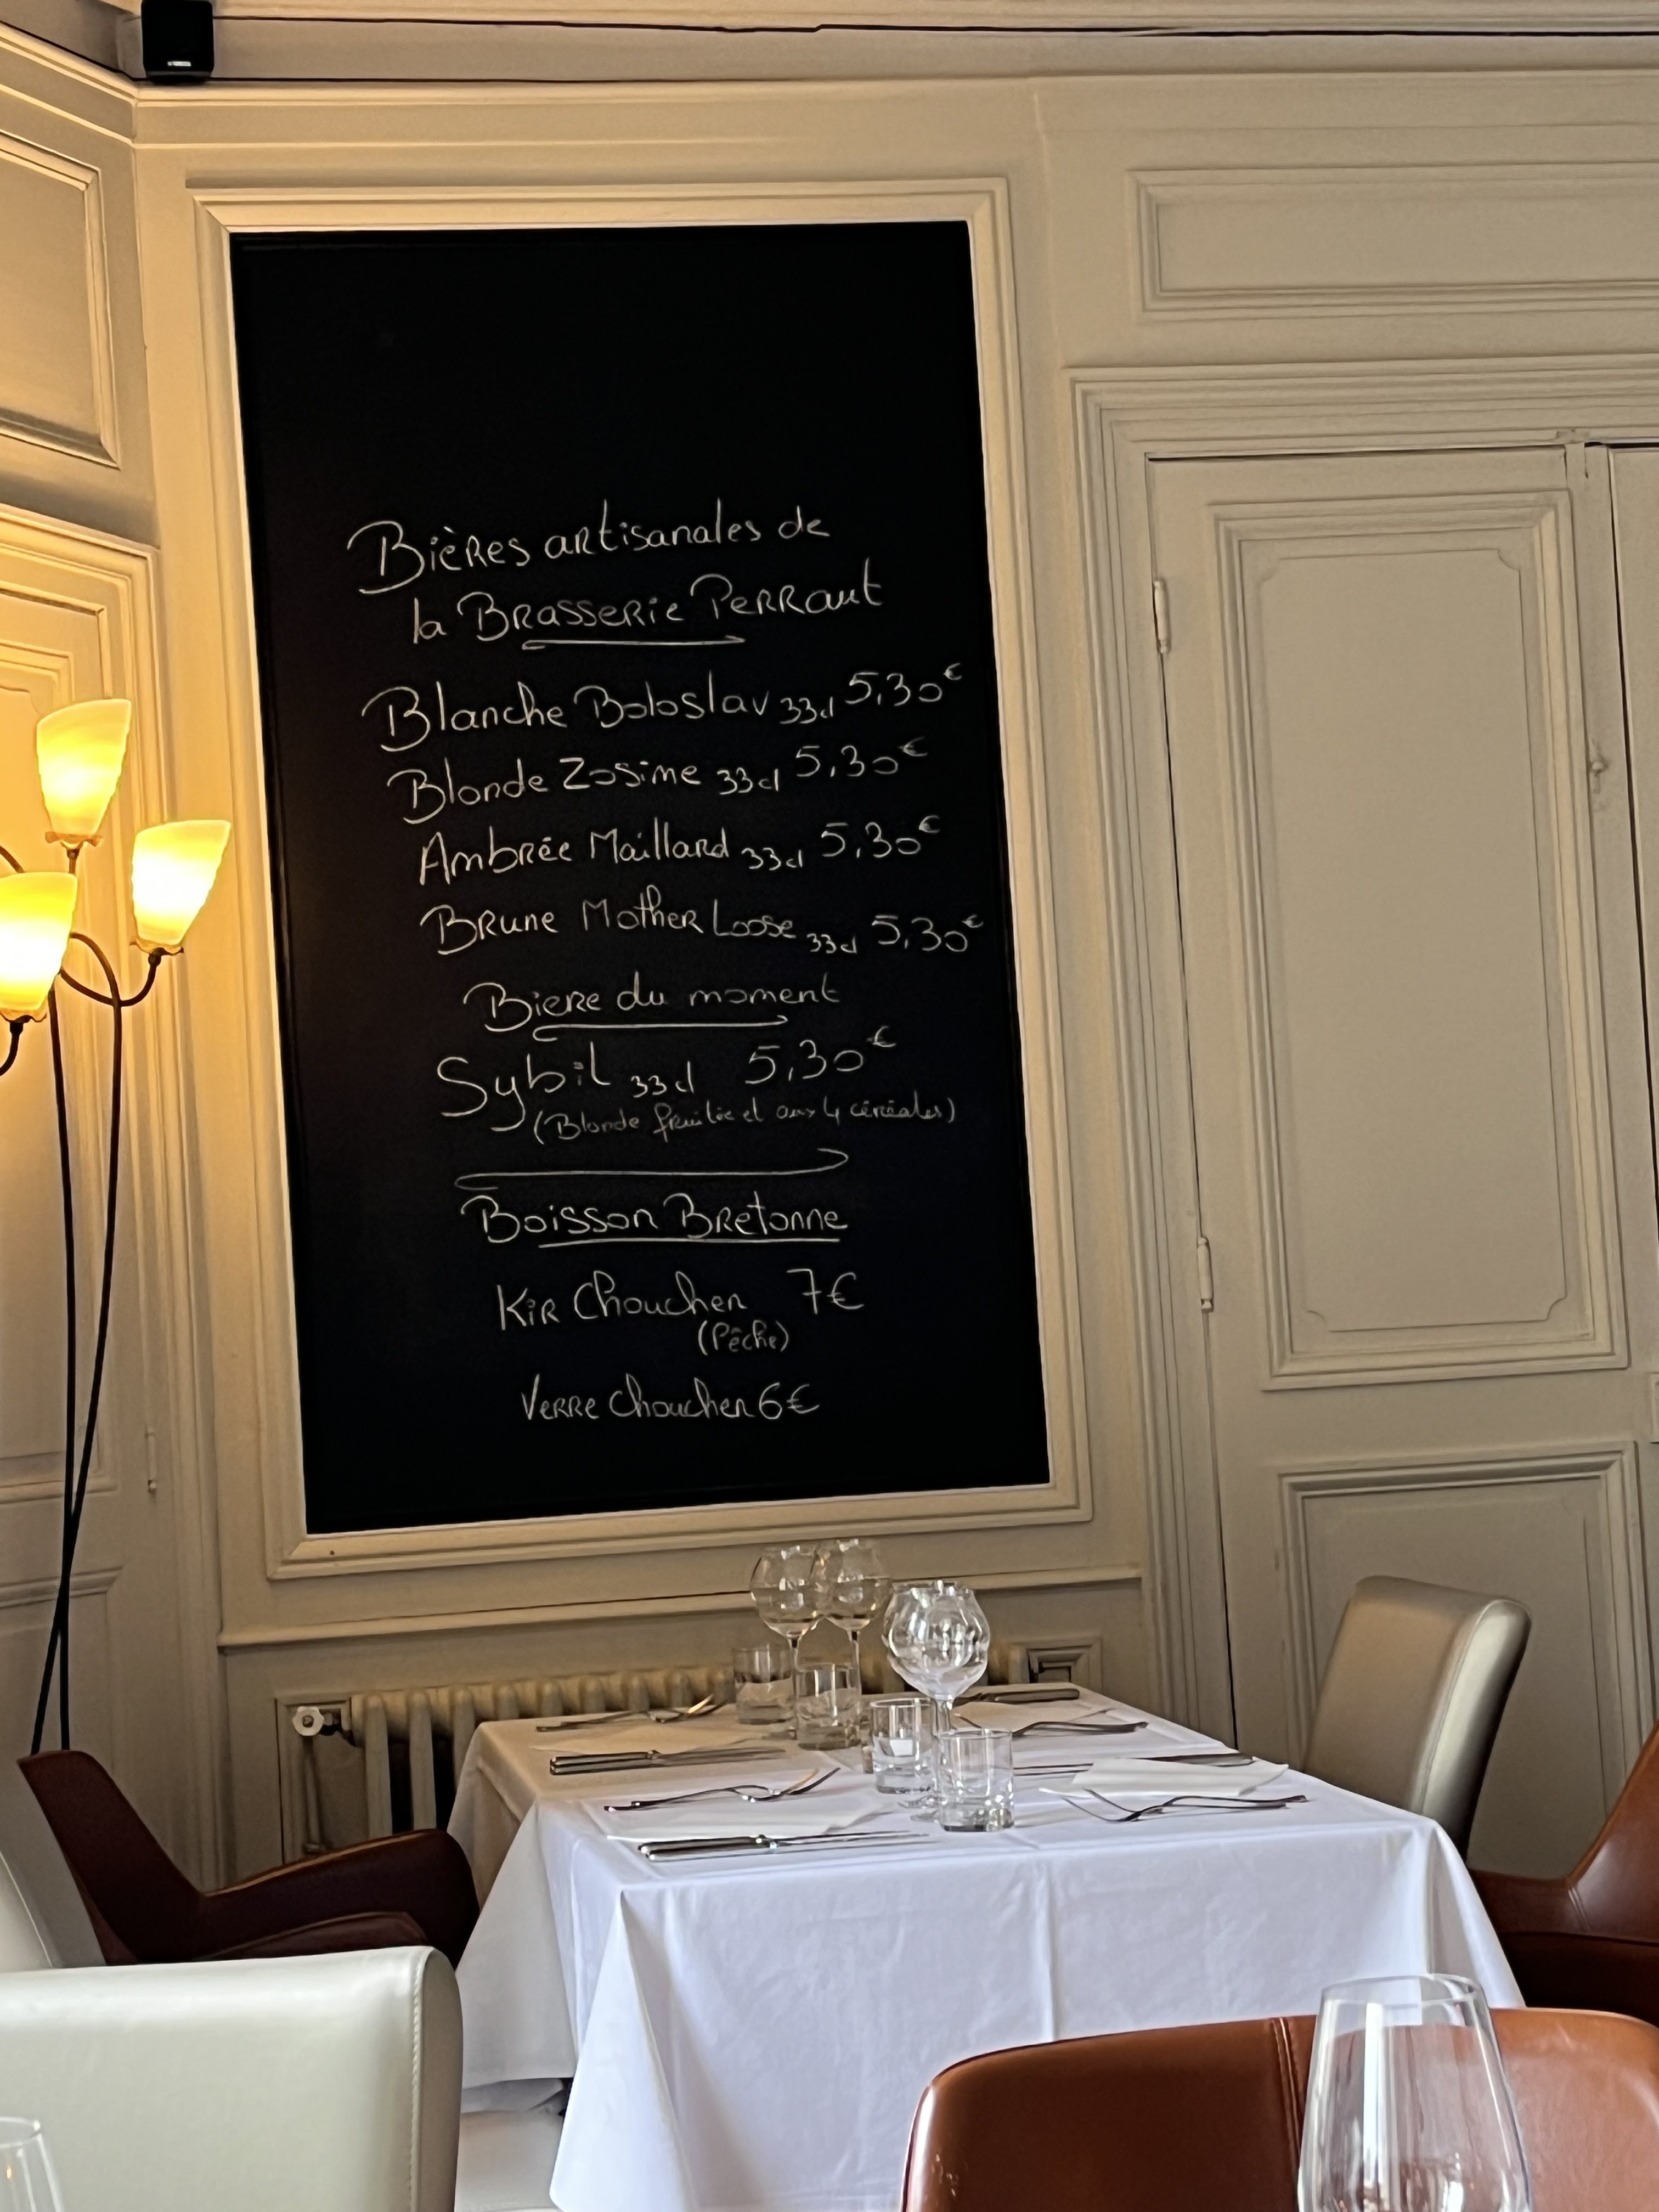 Bières artisanales de
la Brasserie Perraut
Blanche Boboslav 33cl 5,30€
Blonde Zosime 33cl 5,30€
Ambrée Maillard 33cl 5,30€
Brune Mother Loose 33cl 5,30€
Biere du moment
Sybil 33cl 5,30€
(Blonde fruitée et aux 4 céréales)
Boisson Bretonne
Kir Chouchen 7€
(Pêche)
Verre Chouchen 6€